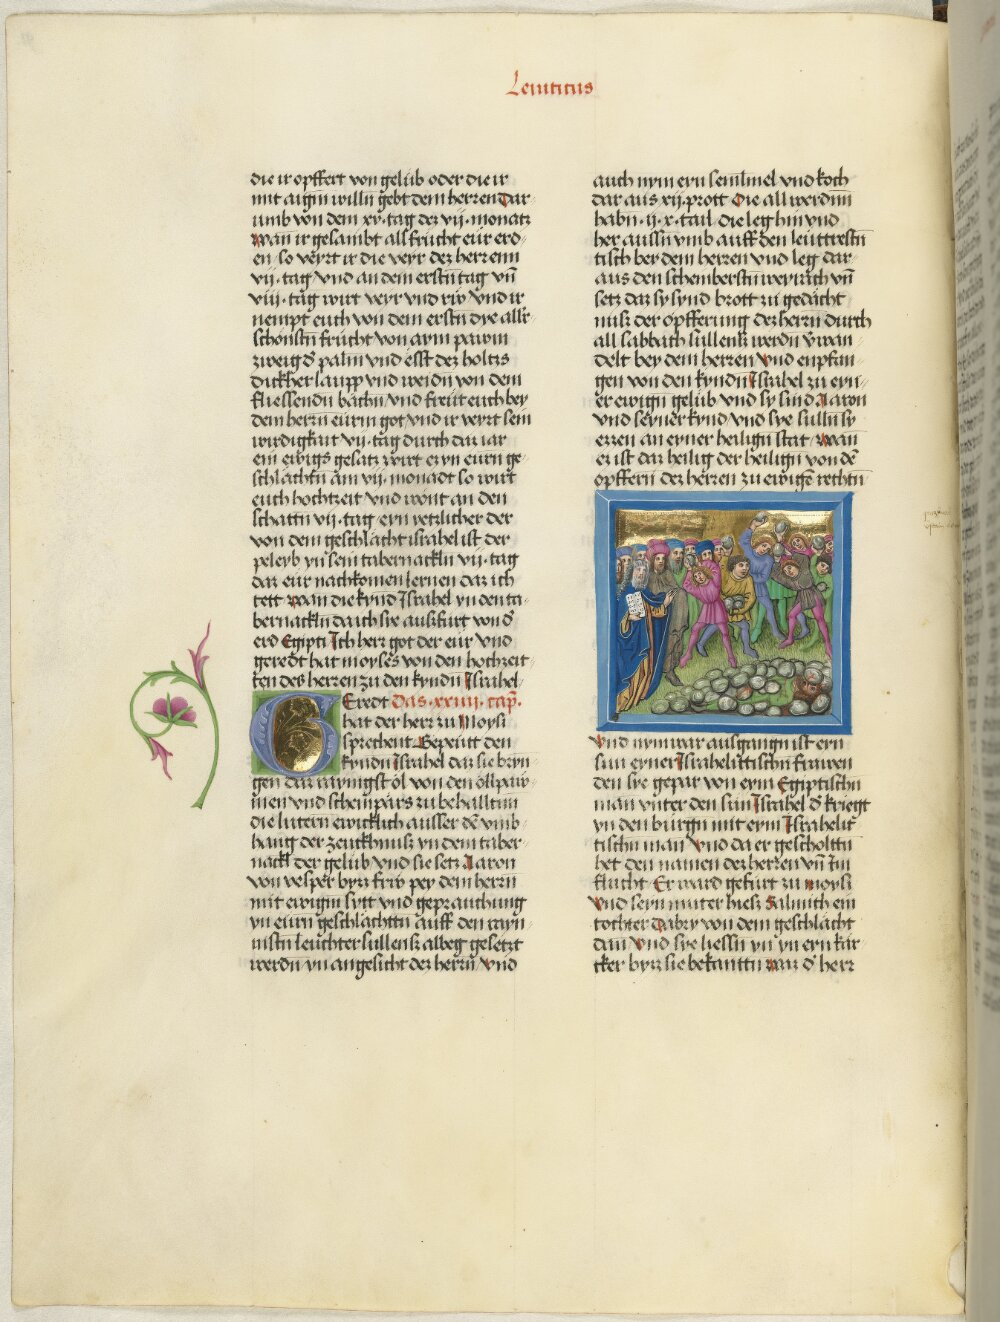 Leuiticus
die ir opffert von gelüb oder die ir
mit aigin willn gebt dem herren Dar
umb von dem xv · tag der vij · monatz
wan ir gesambt all frücht eür erd
en so veyrt ir die veyr dez herrenn
vij · tag vnd an dem erstn tag vn̄
viij · tag wirt veyr vnd rw vnd ir
nempt euch von dem erstn dye allr
schonstn frücht von aym pawm
zweig d̄ palm vnd esst dez holtzs
dickher laupp vnd weidn von dem
fliessendn bachn vnd freüt euch bey
dem herrn eürm got vnd ir veyrt sein
wirdigkait vij · tag durch daz iar
ein ewigs gesatz wirt ez yn eurn ge
schlachtn am vij · monadt so wirt
euch hochtzeit vnd wont an den
schattn vij · tag eyn yetzlicher der
von dem geschlacht israhel ist der
peleyb yn sein tabernackln vij · tag
daz eür nachkomen lernen daz ich
tett wan die kynd Israhel yn den ta
bernackln da ich sye außfürt von d̄
erd Egipti Ich herr got der eür vnd
geredt hat moyses von den hochzeit
ten des herren zu den kyndn Israhel
Geredt Das · xxiiij · cap̄ ·
hat der herr zu Moysi
sprechent Gepeütt den
kyndn Israhel daz sie bryn
gen daz raynigst öl von den öllpaw
men vnd scheinpars zu behalltnn
die lutern ewicklich ausser dē vmb
hang der zeuckhnuß yn dem taber
nackl der gelüb vnd sie setz Aaron
von vesper byzz frw pey dem herrn
mit ewigm sytt vnd geprauchung
yn eurn geschlachttn auff den rayn
nistn leuchter sullenß albeg gesetzt
werdn yn angesicht dez herrn vnd
auch nym eyn semlmel vnd koch
dar aus xij · prott Die all werdnn
habn · ij · x · tail die leg hin vnd
her aussn vmb auff den leuttrestn
tisch bey dem herren vnd leg dar
aus den schemberstn weyrach vn̄
setz daz sy synd brott zu gedächt
nuß der opfferung dez herrn durch
all sabbath sullenß werdn v̄wan
delt bey dem herren vnd enpfan
gen von den kyndn Israhel zu eyn
er ewign gelüb vnd sy sind Aaron
vnd seyner kynd vnd sye sulln sy
ezzen an eyner heilign stat wan
ez ist daz heilig der heilign von dē
opffern dez herren zu ewigē rechtn
vnd nym war ausgangn ist eyn
sun eyner Israhelittischn frawen
den sye gepar von eym Egiptischn
man vnter den sün Israhel d̄ kriegt
yn den burgn mit eym Israhelit
tischn man vnd da er gescholttn
het den namen dez herren vn̄ im
flucht Er ward gefürt zu moysi
vnd seyn muter hiess Salmith ein
tochter Dabry von dem geschlacht
dan vnd sye liessn yn yn eyn kär
cker byzz sie bekanttn waz d̄ herr